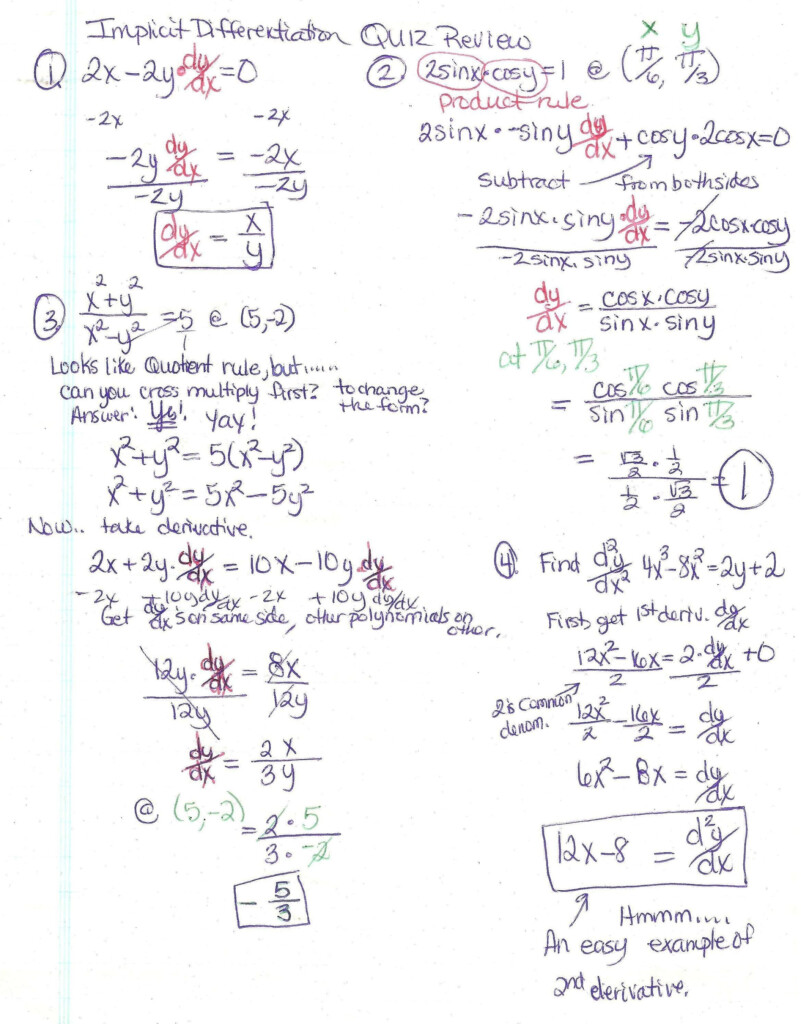 Implicit Differentiation QUIZ Review
① 2x - 2y·dy/dx = 0
-2x -2x
-2y dy/dx = -2x
-2y -2y
dy/dx = x/y
x y
② 2sinx·cosy = 1 @ (π/6, π/3)
product rule
2sinx·-siny dy/dx + cosy·2cosx = 0
subtract from both sides
-2sinx·siny·dy/dx = -2cosx·cosy
-2sinx·siny -2sinx·siny
dy/dx = cosx·cosy / sinx·siny
at π/6, π/3
= cos π/6 cos π/3 / sin π/6 sin π/3
= √3/2 · 1/2 / 1/2 · √3/2 = 1
③ x²+y² / x²-y² = 5 @ (5,-2)
1
Looks like Quotient rule, but......
can you cross multiply first? to change the form?
Answer: Yes! Yay!
x²+y² = 5(x²-y²)
x²+y² = 5x²-5y²
Now.. take derivative.
2x + 2y·dy/dx = 10x - 10y dy/dx
-2x +10y dy/dx -2x +10y dy/dx
Get dy/dx's on same side, other polynomials on other.
12y·dy/dx = 8x
12y 12y
dy/dx = 2x/3y
@ (5,-2)
= 2·5 / 3·-2
- 5/3
④ Find d²y/dx² 4x³-8x² = 2y+2
First, get 1st deriv. dy/dx
12x²-16x = 2·dy/dx + 0
2 2
2 is common denom.
12x²/2 - 16x/2 = dy/dx
6x² - 8x = dy/dx
12x-8 = d²y/dx
Hmmm....
An easy example of
2nd derivative.